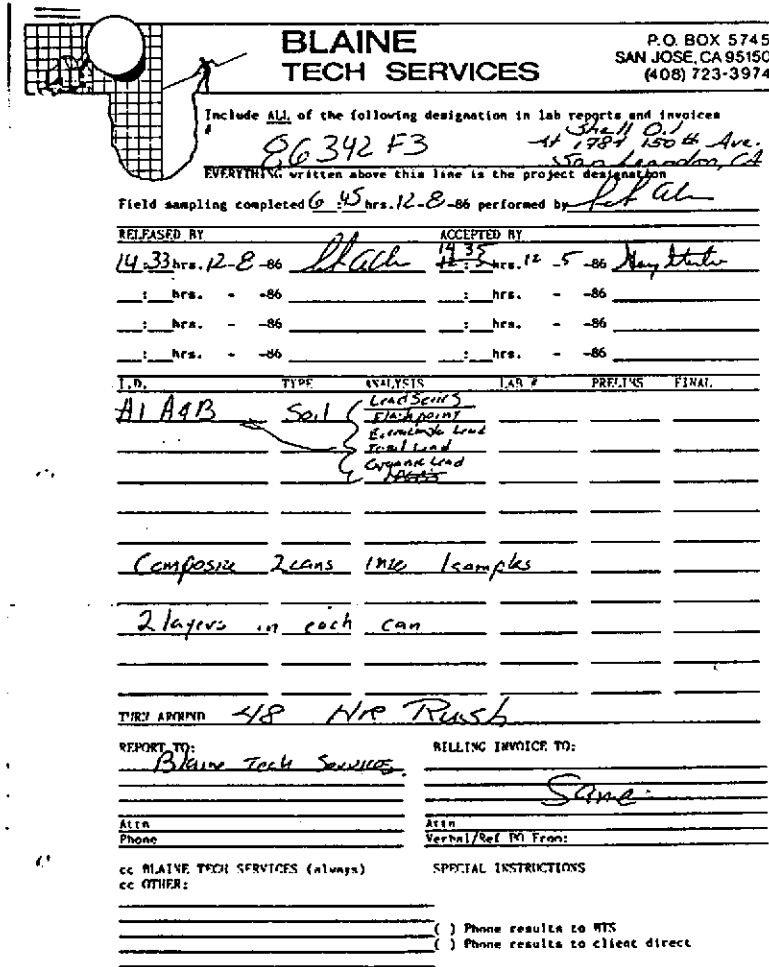 BLAINE
TECH SERVICES
P.O. BOX 5745
SAN JOSE, CA 95150
(408) 723-3974
Include ALL of the following designation in lab reports and invoices
# 86342 F3 Shell Oil
At 1784 150th Ave.
San Leandro, CA
EVERYTHING written above this line is the project designation
Field sampling completed 6:45 hrs. 12-8-86 performed by
RELEASED BY ACCEPTED BY
14:33 hrs. 12-8-86 14 35 hrs. 12-5-86
__:__hrs. - -86 __:__hrs. - -86
__:__hrs. - -86 __:__hrs. - -86
__:__hrs. - -86 __:__hrs. - -86
I.D. TYPE ANALYSIS LAB # PRELIMS FINAL
A1 A&B Soil Lead
Flashpoint
Lead
Total Lead
Organic Lead
Composite 2 cans into 1 samples
2 layers in each can
TURN AROUND 48 Hr Rush
REPORT TO: BILLING INVOICE TO:
Blaine Tech Services.
Same
Attn Attn
Phone Verbal/Ref PO From:
cc BLAINE TECH SERVICES (always) SPECIAL INSTRUCTIONS
cc OTHER:
( ) Phone results to BTS
( ) Phone results to client direct